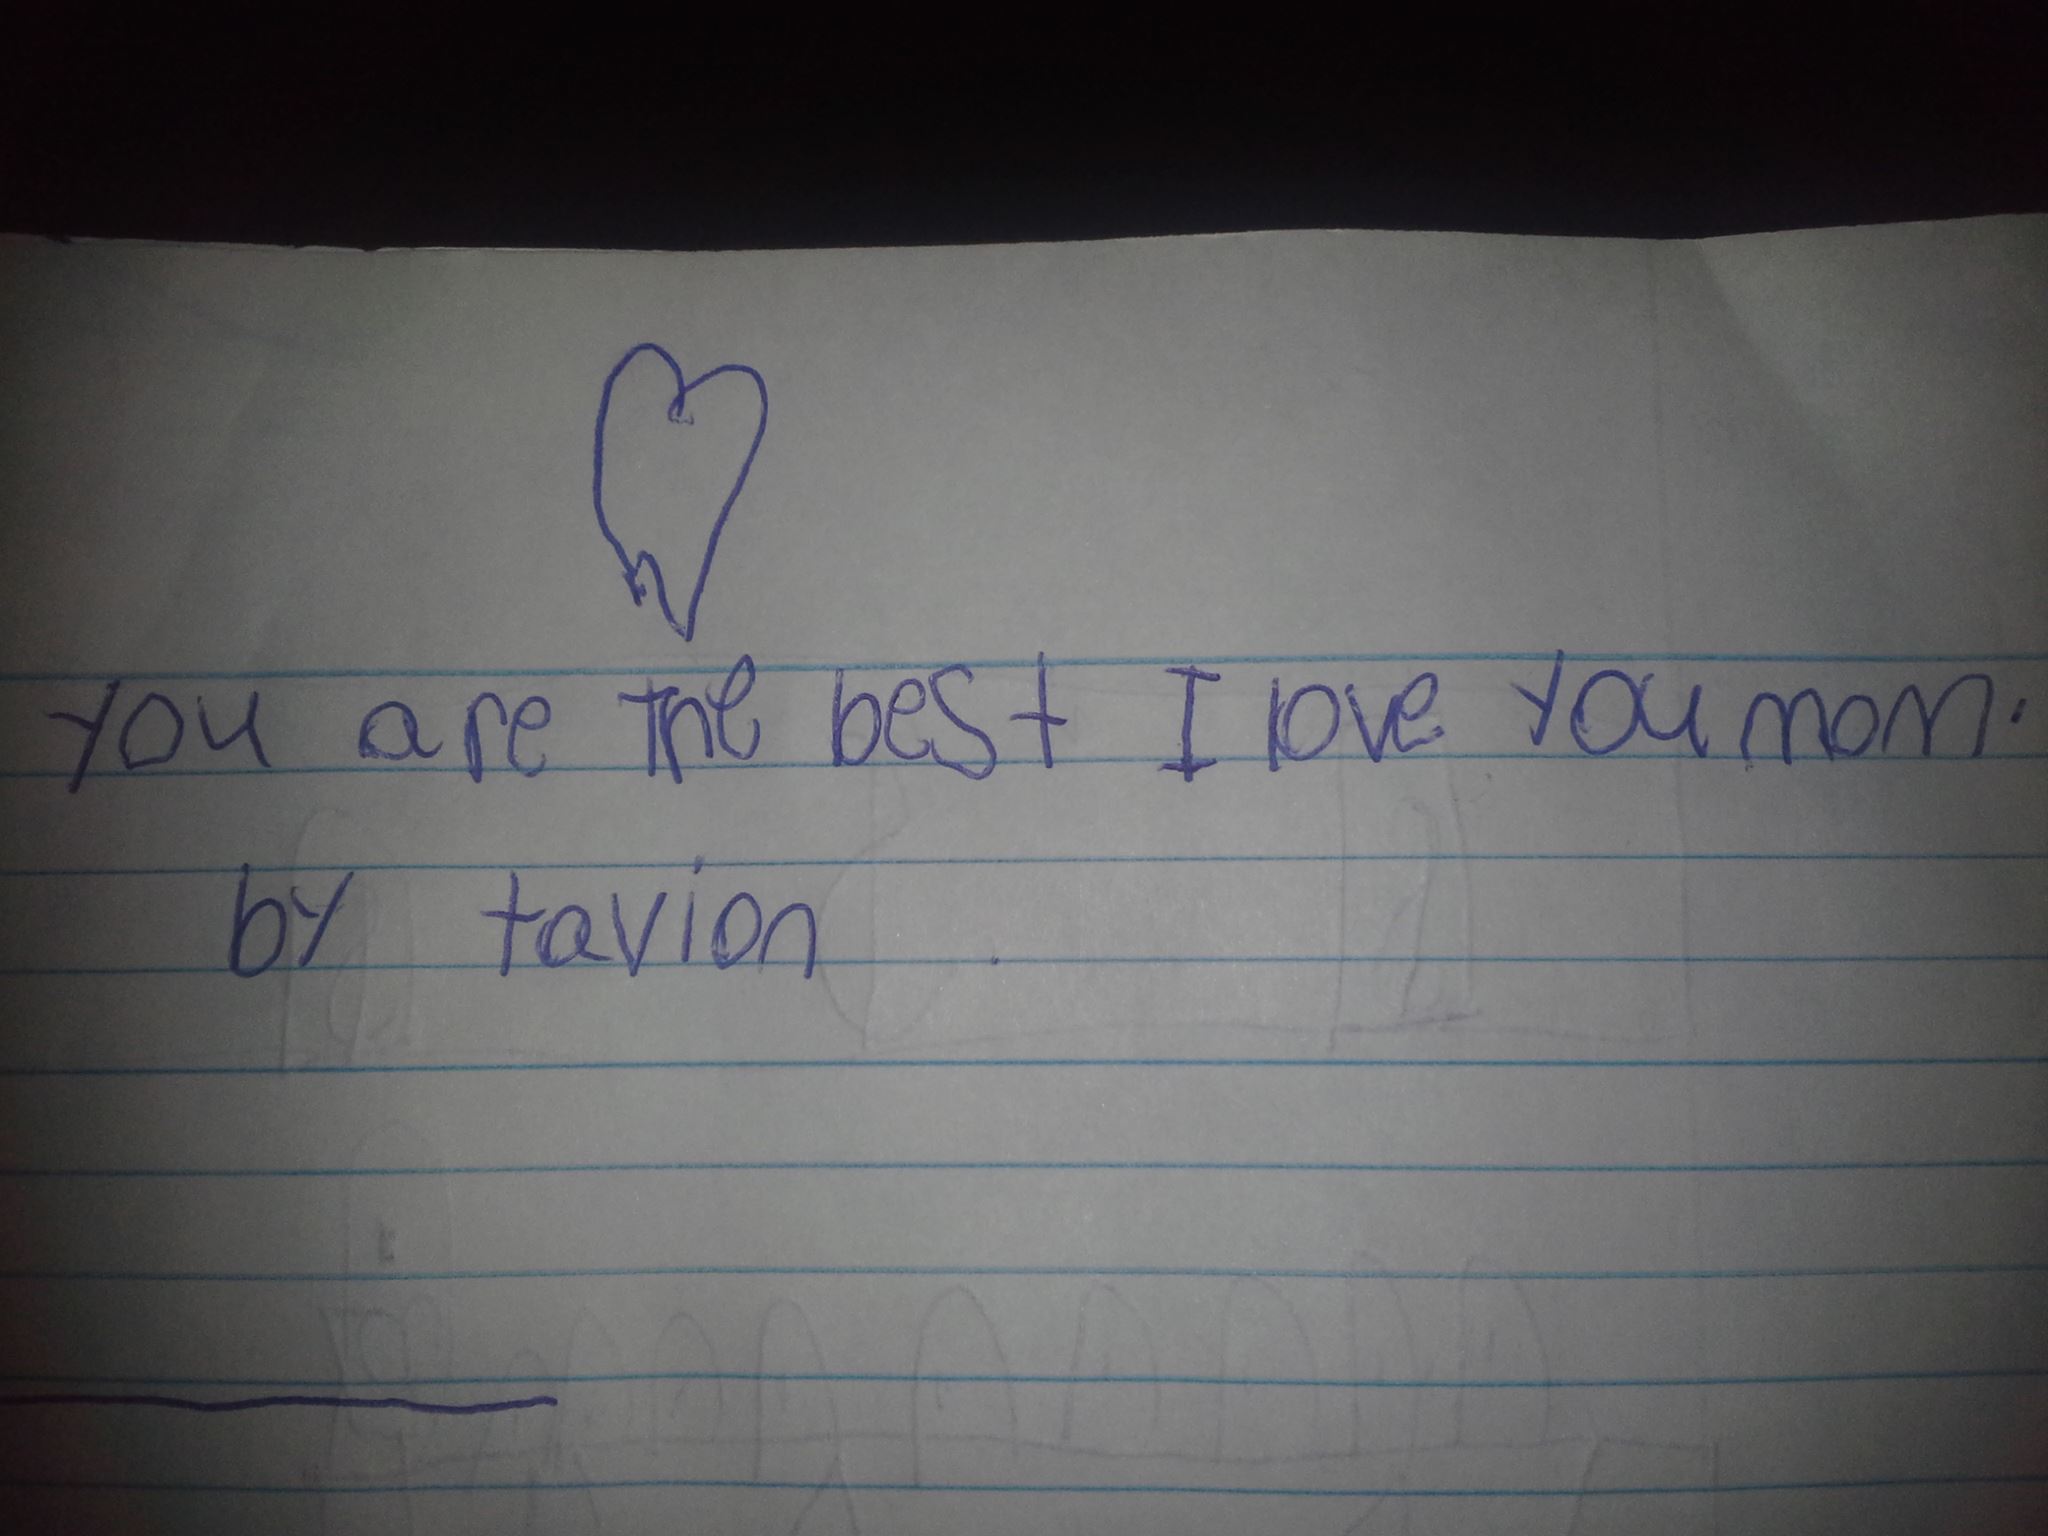 you are the best I love you mom.
by tavion